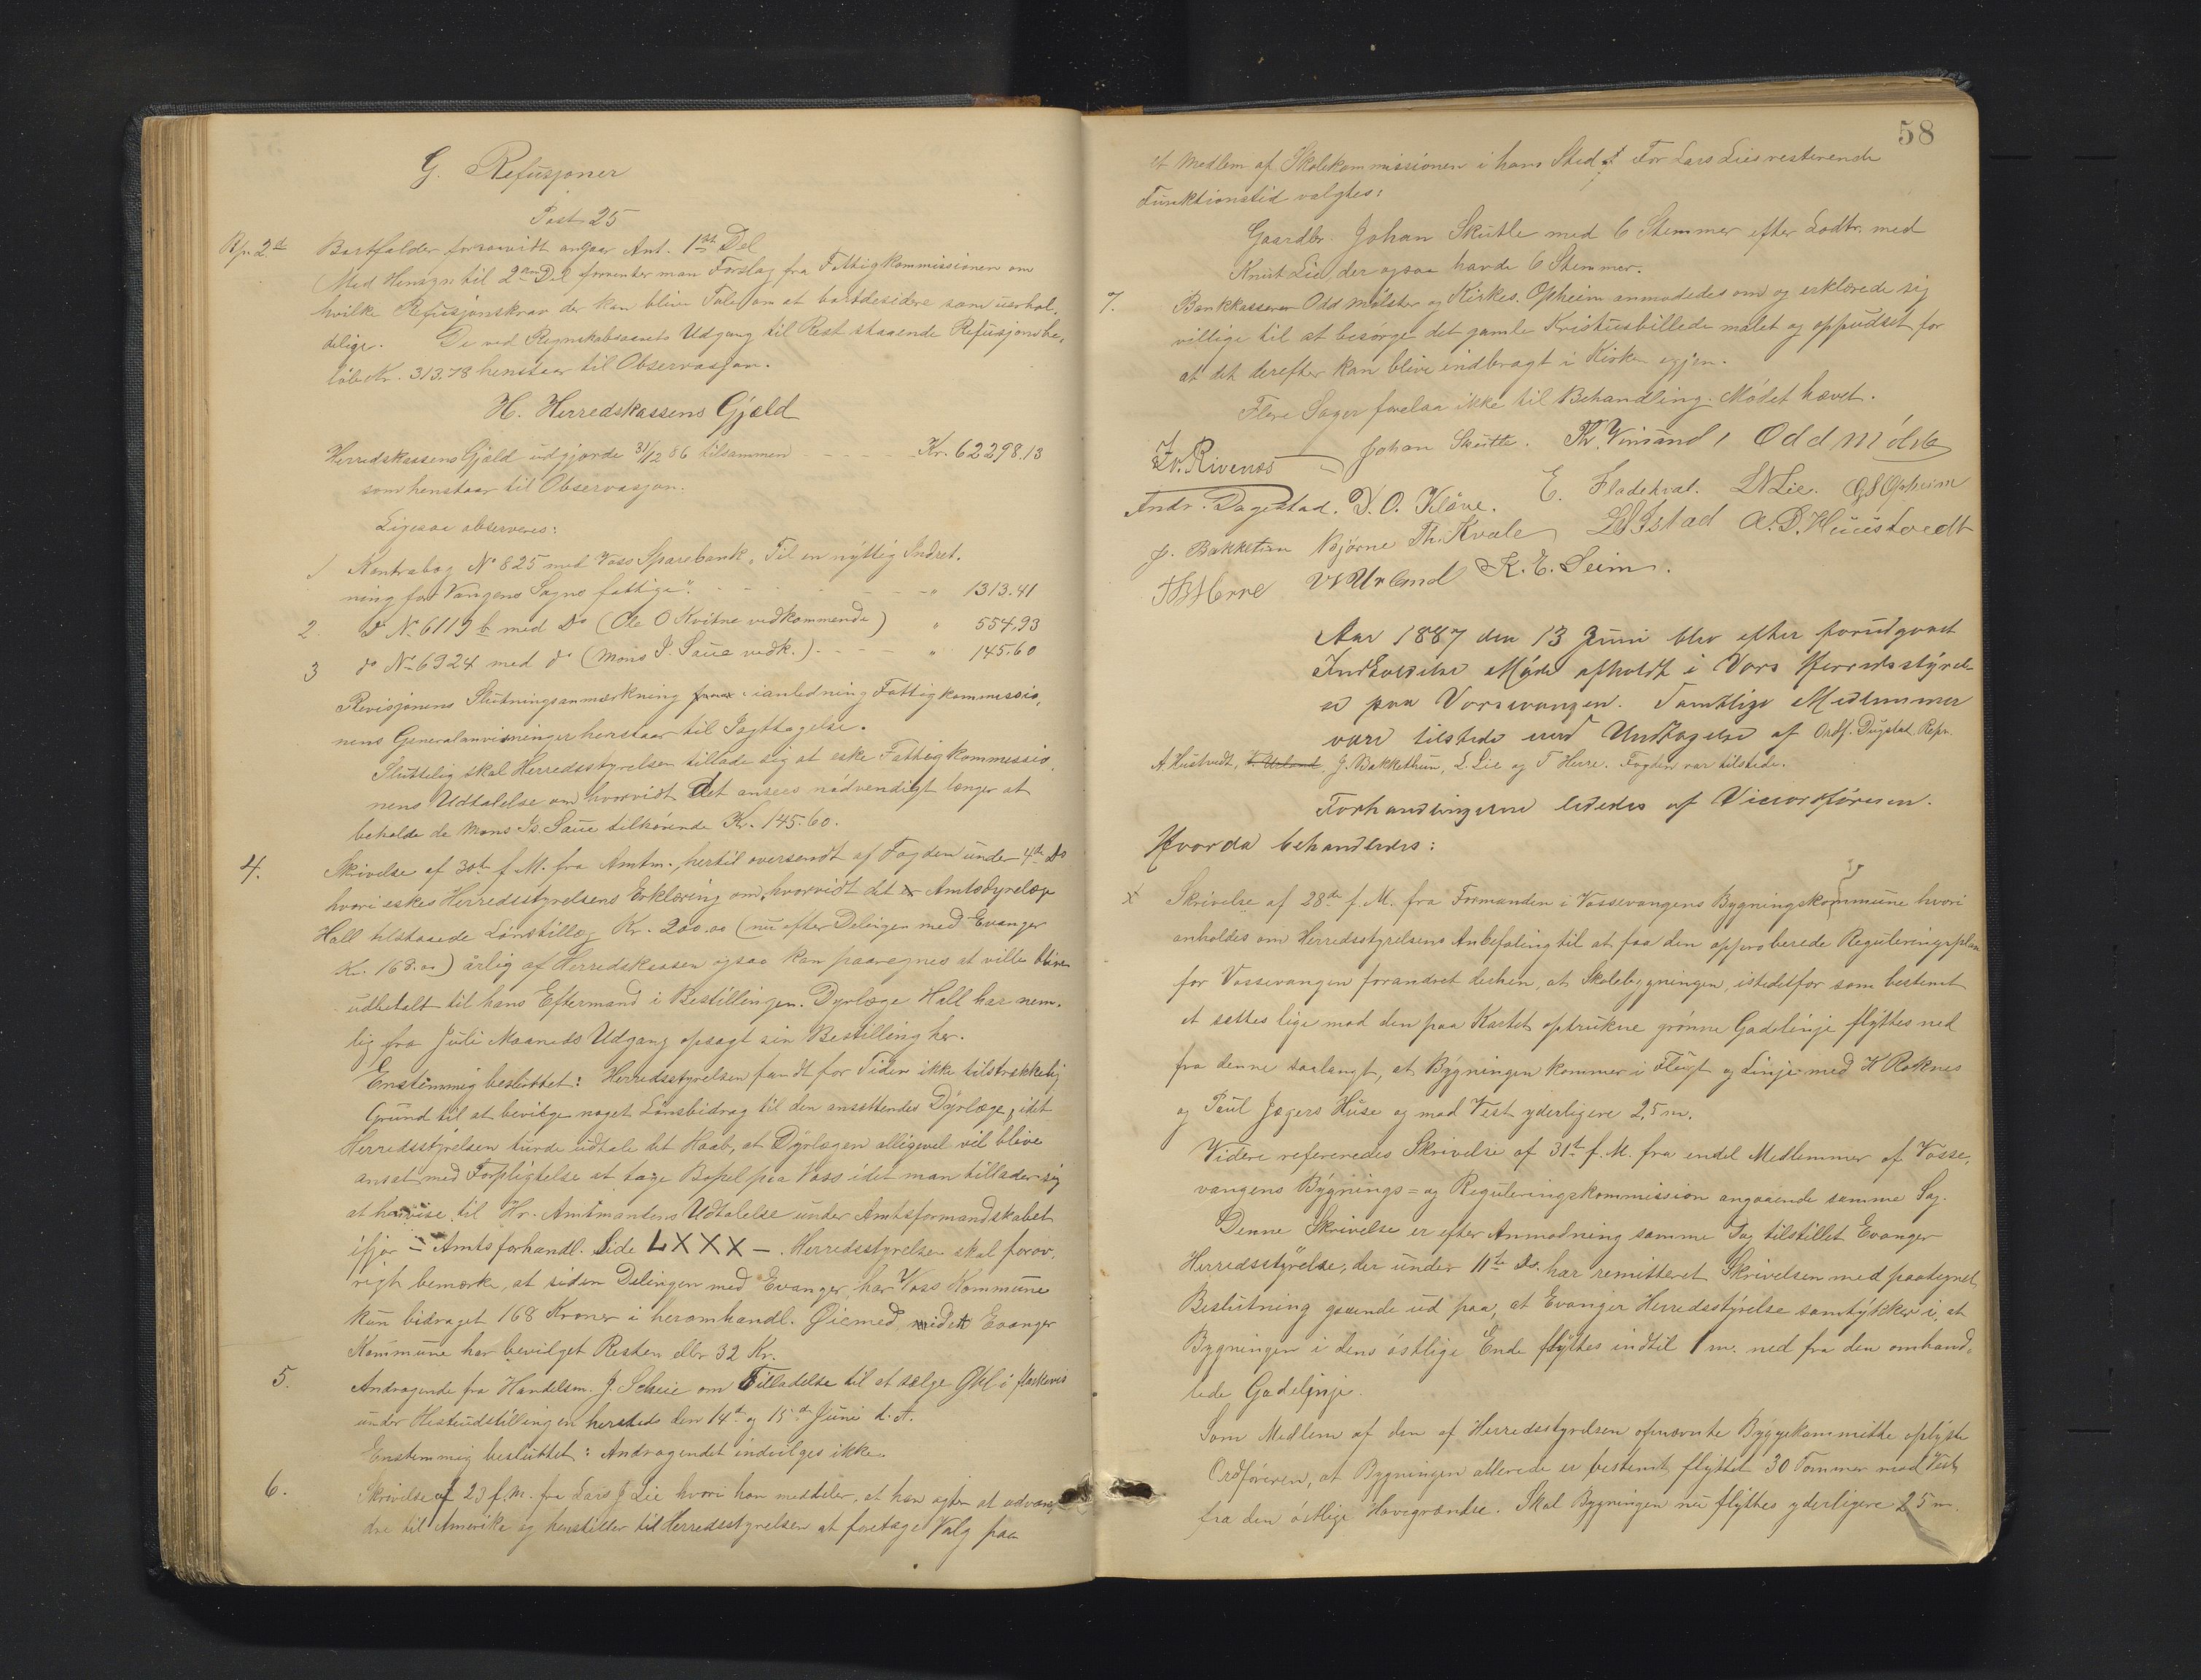 G. Refusjoner
Post 25
Bortfalder forsaavidt angaar Ant. 1ste Del
Med Hensyn til 2den Del forventer man Forslag fra Fattigkommissionen om
hvilke Refusjonskrav der kan blive Tale om at bortdesidere som uerhol-
delige. De ved Regnskabsaarets Udgang til Rest staaende Refusjonsbe-
løb Kr. 313.78 henstaar til Observasjon.
H. Herredskassens Gjæld
Herredskassens Gjæld udgjorde 31/12 86 tilsammen - - - - Kr. 62298.13
som henstaar til Observasjon.
Ligesaa observeres:
1 Kontrabog No 825 med Voss Sparebank "Til en nyttig Indret-
ning for Vangens Sogns fattige". - - - - - " 1313.41
2. Do No 6119 b med Do (Ole O Kvitne vedkommende) " 554.93
3 do No 6924 med do (Mons I. Saue vedk.) - - - - " 145.60
Revisjonens Slutningsanmærkning ianledning Fattigkommissio-
nens Generalanvisninger henstaar til Iagttagelse.
Sluttelig skal Herredsstyrelsen tillade sig at eske Fattigkommissio-
nens Udtalelse om hvorvidt det ansees nödvendigt længer at
beholde de Mons Is. Saue tilhörende Kr. 145.60.
4. Skrivelse af 30te f. M. fra Amtm., hertil oversendt af Fogden under 4de Ds
hvori eskes Herredsstyrelsens Erklæring om, hvorvidt det Amtsdyrelæge
Hall tilstaaede Lönstillæg Kr. 200.00 (nu efter Delingen med Evanger
Kr. 168.00) årlig af Herredskassen ogsaa kan paaregnes at ville blive
udbetalt til hans Eftermand i Bestillingen. Dyrlæge Hall har nem-
lig fra Juli Maaneds Udgang opsagt sin Bestilling her.
Enstemmig besluttet: Herredsstyrelsen fandt for Tiden ikke tilstrækkelig
Grund til at bevilge noget Lönsbidrag til den ansættendes Dyrlæge, idet
Herredsstyrelsen turde udtale det Haab, at Dyrlægen alligevel vil blive
ansat med Forpligtelse at tage Bopel paa Voss idet man tillader sig
at henvise til Hr. Amtmandens Udtalelse under Amtsformandskabet
ifjor - Amtsforhandl. Side LXXX -. Herredsstyrelsen skal forøv-
rigt bemærke, at siden Delingen med Evanger, har Voss Kommune
kun bidraget 168 Kroner i heromhandl. Øiemed, Evanger
Kommune har bevilget Resten eller 32 Kr.
5. Andragende fra Handelsm. J. Scheie om Tilladelse til at sælge Øhl i flaskevis
under Hesteudstillingen hersteds den 14de og 15de Juni d. A.
Enstemmig besluttet: Andragendet indvilges ikke.
6. Skrivelse af 23 f. M. fra Lars J Lie hvori han meddeler, at han agter at udvan-
dre til Amerika og henstiller til Herredsstyrelsen at foretage Valg paa
58
et Medlem af Skolekommissionen i hans Sted. For Lars Lies resterende
Funktionstid valgtes:
Gaardbr. Johan Skutle med 6 Stemmer efter Lodtr. med
Knut Lie, der ogsaa havde 6 Stemmer.
7. Bankkasserer Odd Mølster og Kirkes. Opheim anmodedes om og erklærede sig
villige til at besörge det gamle Kristusbillede malet og oppudset for
at det derefter kan blive indbragt i Kirken igjen.
Flere Sager forelaa ikke til Behandling. Mödet hævet.
Rivenes Johan Skutle. Th. Vinsand, Odd Mølste
Andr. Dagestad. O. Kløve. E. Fladekval. LNLie. GSOpheim
J. Bakketun Bjørne Th. Kvale Istad A.D. Huustvedt
Herre Urland K. E. Seim.
Aar 1887 den 13 Juni blev efter forudgaaet
Indkaldelse Møde afholdt i Vors Herredsstyrel-
se paa Vorsevangen. Samtlige Medlemmer
vare tilstede med Undtagelse af Ordf. Dugstad, Repr.
A. Hustvedt, V. Urland, J. Bakkethun, L. Lie og T Herre. Fogden var tilstede.
Forhandlingerne lededes af Viceordføreren.
Hvorda behandledes:
x Skrivelse af 28de f. M. fra Formanden i Vossevangens Bygningskommune hvori
anholdes om Herredsstyrelsens Anbefaling til at faa den approberede Reguleringsplan
for Vossevangen forandret derhen, at Skolebygningen, istedetfor som bestemt
at sættes lige mod den paa Kartet optrukne grønne Gadelinje flyttes ned
fra denne saalangt, at Bygningen kommer i Flugt og Linje med K Roknes
og Paul Jægers Huse og mod Vest yderligere 2,5 m.
Videre refereredes Skrivelse af 31te f. M. fra endel Medlemmer af Vosse-
vangens Bygnings= og Reguleringskommission angaaende samme Sag.
Denne Skrivelse er efter Anmodning samme Dag tilstillet Evanger
Herredsstyrelse, der under 11te Ds. har remitteret Skrivelsen med paategnet
Beslutning gaaende ud paa, at Evanger Herredsstyrelse samtykker i, at
Bygningen i dens östlige Ende flyttes indtil 1 m. ned fra den omhand-
lede Gadelinje.
Som Medlem af den af Herredsstyrelsen opnævnte Byggekommitte oplyste
Ordføreren, at Bygningen allerede er bestemt flyttet 30 Tommer mod Vest
fra den östlige Havegrændse. Skal Bygningen nu flyttes yderligere 2,5 m.